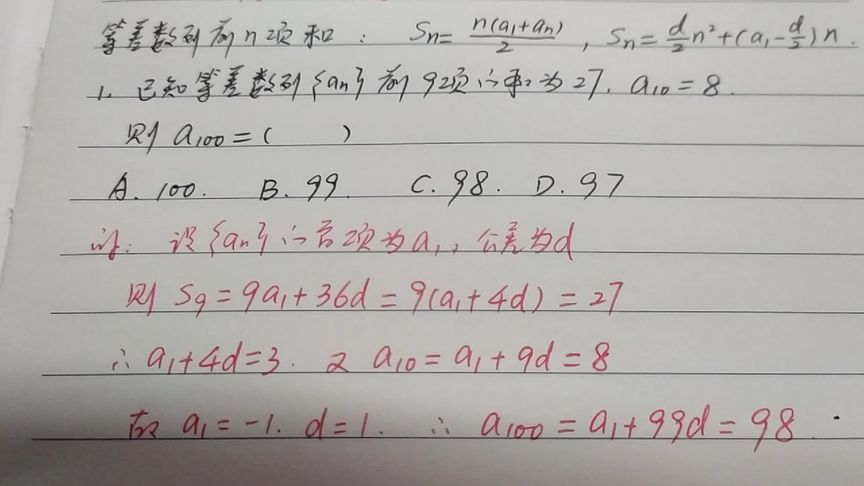 等差数列前n项和: Sn=n(a₁+an)/2, Sn=d/2n²+(a₁-d/2)n.
1. 已知等差数列{an}前9项的和为27, a₁₀=8.
则a₁₀₀=( )
A. 100. B. 99. C. 98. D. 97
设{an}的首项为a₁, 公差为d
则S₉=9a₁+36d=9(a₁+4d)=27
∴a₁+4d=3. 又a₁₀=a₁+9d=8
故a₁=-1. d=1. ∴a₁₀₀=a₁+99d=98.